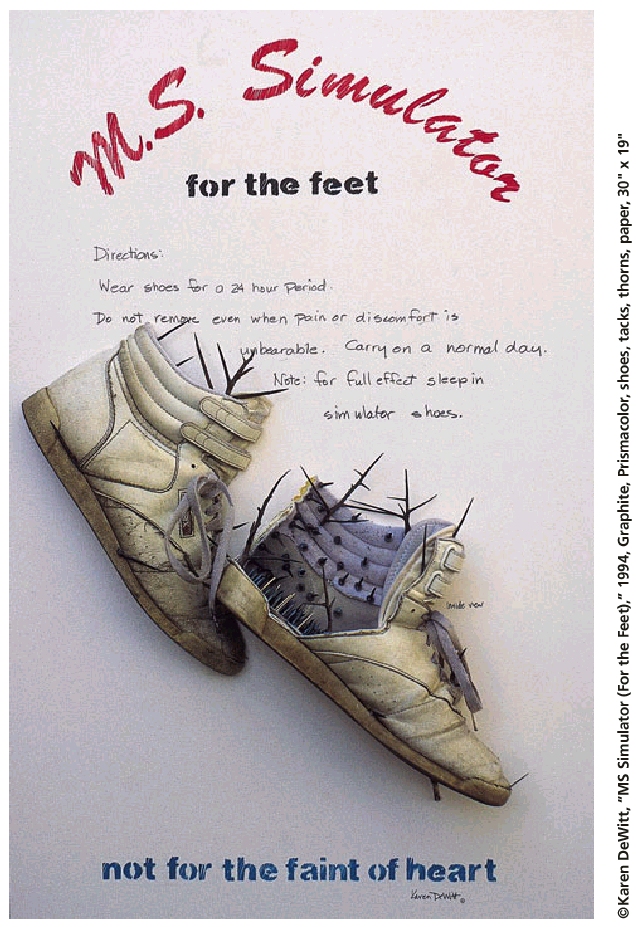 M.S. Simulator
for the feet
Directions:
Wear shoes for a 24 hour period.
Do not remove even when pain or discomfort is
unbearable. Carry on a normal day.
Note: for full effect sleep in
simulator shoes.
inside view
not for the faint of heart
Karen DeWitt ©
©Karen DeWitt, "MS Simulator (For the Feet)," 1994, Graphite, Prismacolor, shoes, tacks, thorns, paper, 30" x 19"